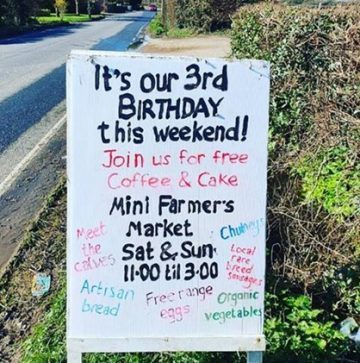 It's our 3rd
BIRTHDAY
this weekend!
Join us for free
Coffee & Cake
Mini Farmer's
Market
Sat & Sun
11.00 til 3.00
Meet
the
calves
Chutneys
Local
rare
breed
sausages
Artisan
bread
Free range
eggs
Organic
vegetables